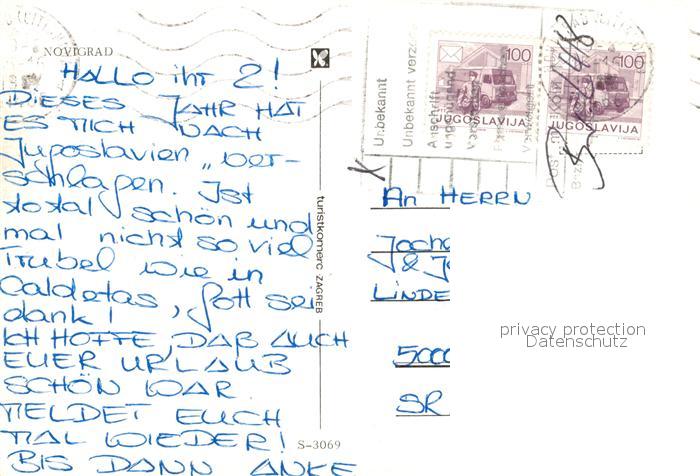 NOVIGRAD
HALLO ihr 2!
DIESES JAHR HAT
ES MICH NACH
Jugoslavien „ver-
schlagen. Ist
total schön und
mal nicht so viel
Trubel wie in
Caldetas, Gott sei
dank!
ICH HOFFE, DAß AUCH
EUER URLAUB
SCHÖN WAR.
MELDET EUCH
MAL WIEDER!
BIS DANN ANKE
turistkomerc ZAGREB
S-3069
Unbekannt
Unbekannt verzo
Anschrift
100
JUGOSLAVIJA
100
JUGOSLAVIJA
An HERRN
Joch
& Jo
LINDE
5000
SR
privacy protection
Datenschutz